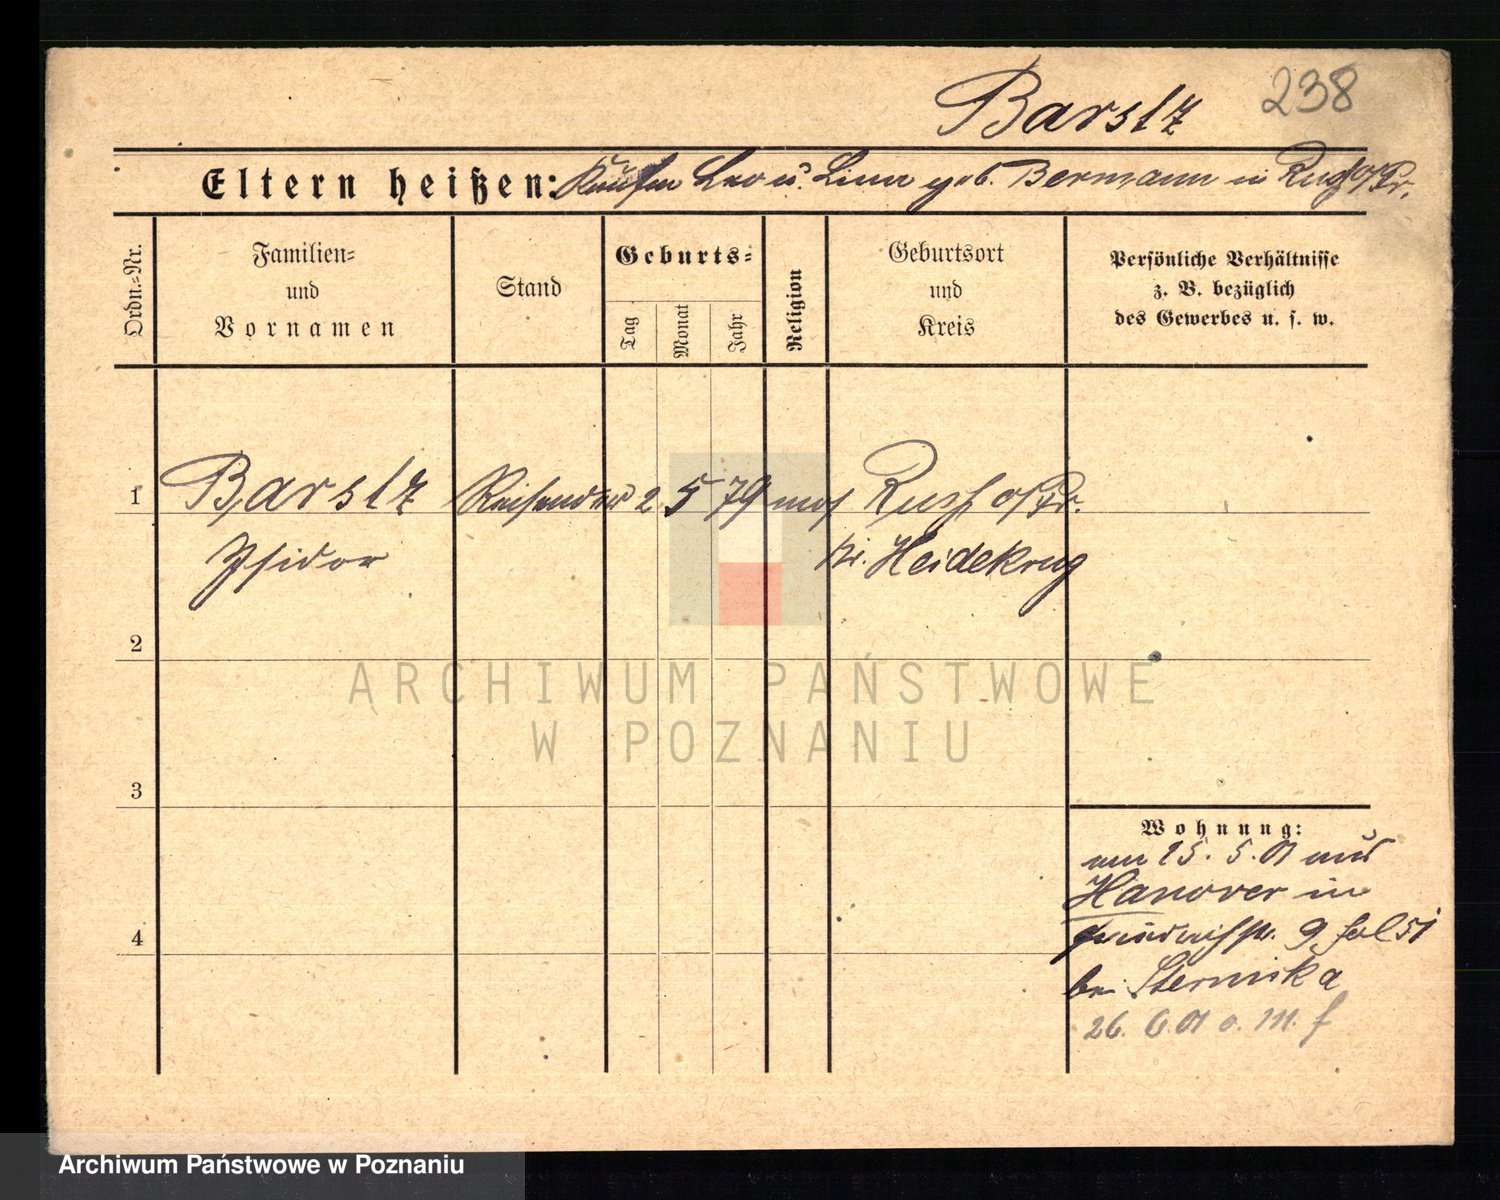 Barstz 238
Eltern heißen: Kaufm Leo u. Lina geb. Bermann in Ruß o/Pr.
Ordn.-Nr.
Familien-
und
Vornamen
Stand
Geburts-
Tag
Monat
Jahr
Religion
Geburtsort
und
Kreis
Persönliche Verhältnisse
z. B. bezüglich
des Gewerbes u. s. w.
1 Barstz Reisender 2 5 79 mos Russ o/Pr.
Isidor Kr. Heidekrug
2
3
4
Wohnung:
am 15. 5. 01 aus
Hanover in
9
bei Sternika
26. 6. 01 o. m. f
ARCHIWUM PAŃSTWOWE
W POZNANIU
Archiwum Państwowe w Poznaniu